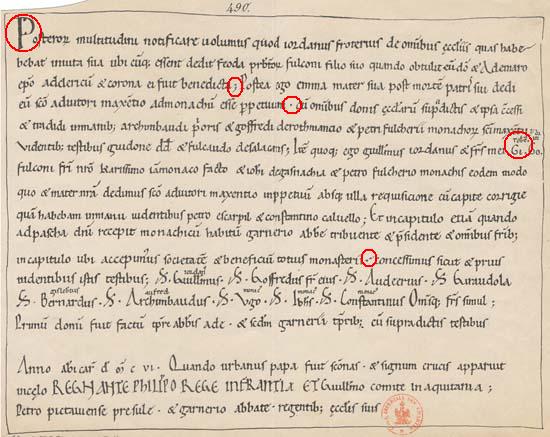 490.
Posteror multitudini notificare volumus quod iordanus froterius de omnibus ęcclesiis quas habe
bebat invita sua ubi cumque essent dedit feoda filio suo quando obtulit eum do & Ademaro
epo adelericu & corona ei fuit benedicta ; Postea ego emma mater sua post morte patris sui dedi
eu sco adiutori maxentio admonachu esse ppetuum · cu omibus donis supdictis & ipsa
& tradidi inmanib; archimbaudi poris & gosfredi & petri fulcherii monachor sci maxentii
videntib; testibus guidone & fulcaudo ; Ite quoq; ego guillmus iordanus & frs mei Gi. bo.
fulconi fri nro karissimo iamonaco facto & iohi & petro fulcherio monachis eodem modo
quo & mater nra dedimus sco adiutori maxentio inppetuu absq; ulla requisicione cu capite corrigie
qua habebam inmanu videntibus petro escarpil & constantino calvello ; Et incapitulo etia quando
adpascha dni recepit monachicu habitu garnerio abbe tribuente & psidente & omibus frib;
incapitulo ubi accepimus societate & beneficiu totius monasterii · concessimus sicut & prius
videntibus istis testibus ; S. Guillmus · S. Goffredus fr eius · S. Audeerius · S. Garaudola
S. Bernardus · S. Archimbaudus · S. Ugo · S. Iohs · S. Constantinus Omisq; frs simul ;
Primu donu fuit factu pre abbis ade · & sedm garnerii tprib; cu supradictis testibus
Anno abicar d m c vi · Quando urbanus papa fuit & signum crucis apparuit
incęlo REGNANTE PHILIPPO REGE INFRANTIA ET Guillmo comite in aquitania ;
Petro pictavense presule · & garnerio abbate · regentib; ęcclesiis suis